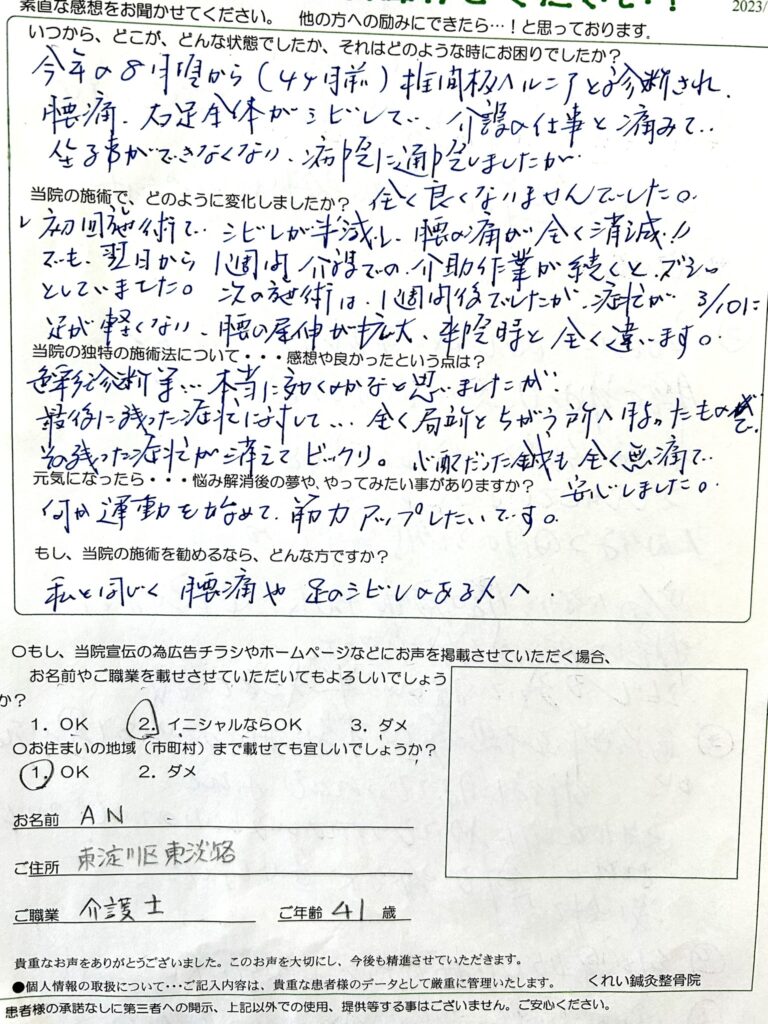 素直な感想をお聞かせください。 他の方への励みにできたら…！と思っております。
2023/
いつから、どこが、どんな状態でしたか、それはどのような時にお困りでしたか？
今年の8月頃から（4ヶ月前）椎間板ヘルニアと診断され、
腰痛、右足全体がシビレて、介護の仕事と痛みで、
坐る事ができなくなり、病院に通院しましたが
全く良くなりませんでした。
当院の施術で、どのように変化しましたか？
初回施術で、シビレが半減し、腰の痛が全く消滅!!
でも、翌日から1週間介護での介助作業が続くと、ズシッ
としていました。次の施術は、1週間後でしたが、症状が3/10に
足が軽くなり、腰の屈伸が拡大、来院時と全く違います。
当院の独特の施術法について・・・感想や良かったという点は？
色彩診断等…本当に効くのかなと思いましたが、
最後に残った症状に対して…全く局所とちがう所へ貼ったもので、
その残った症状が消えてビックリ。心配だった鍼も全く無痛で
安心しました。
元気になったら・・・悩み解消後の夢や、やってみたい事がありますか？
何か運動を始めて、筋力アップしたいです。
もし、当院の施術を勧めるなら、どんな方ですか？
私と同じく腰痛や足のシビレのある人へ。
〇もし、当院宣伝の為広告チラシやホームページなどにお声を掲載させていただく場合、
お名前やご職業を載せさせていただいてもよろしいでしょう
か？
1．OK 2．イニシャルならOK 3．ダメ
〇お住まいの地域（市町村）まで載せても宜しいでしょうか？
1．OK 2．ダメ
お名前 AN
ご住所 東淀川区東淡路
ご職業 介護士 ご年齢 41 歳
貴重なお声をありがとうございました。このお声を大切にし、今後も精進させていただきます。
●個人情報の取扱について・・・ご記入内容は、貴重な患者様のデータとして厳重に管理いたします。 くれい鍼灸整骨院
患者様の承諾なしに第三者への開示、上記以外での使用、提供等する事はございません。ご安心ください。